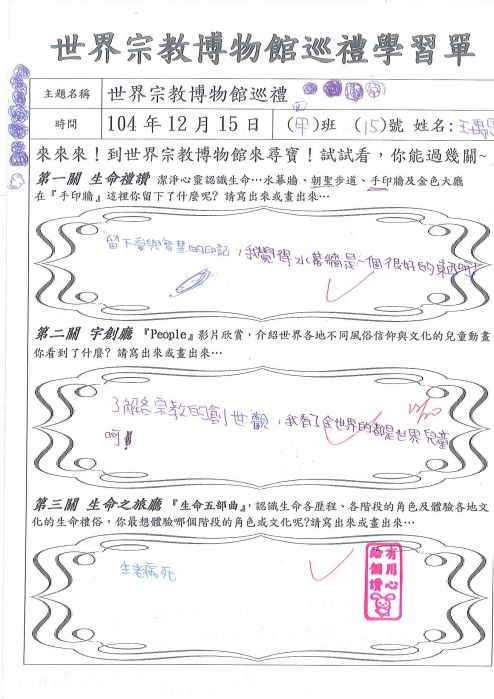 世界宗教博物館巡禮學習單
主題名稱 世界宗教博物館巡禮
時間 104 年 12 月 15 日 四(甲)班 (15)號 姓名:王
來來來！到世界宗教博物館來尋寶！試試看，你能過幾關~
第一關 生命禮讚 潔淨心靈認識生命…水幕牆、朝聖步道、手印牆及金色大廳
在『手印牆』這裡你留下了什麼呢？請寫出來或畫出來…
留下愛與智慧的印記，我覺得水幕牆是一個很好的東西啊！
第二關 宇創廳『People』影片欣賞，介紹世界各地不同風俗信仰與文化的兒童動畫
你看到了什麼？請寫出來或畫出來…
了解各宗教的創世觀，我看了全世界的都是世界兒童
啊！
12/20
第三關 生命之旅廳『生命五部曲』，認識生命各歷程、各階段的角色及體驗各地文
化的生命禮俗，你最想體驗哪個階段的角色或文化呢？請寫出來或畫出來…
生老病死
有用心
給個讚